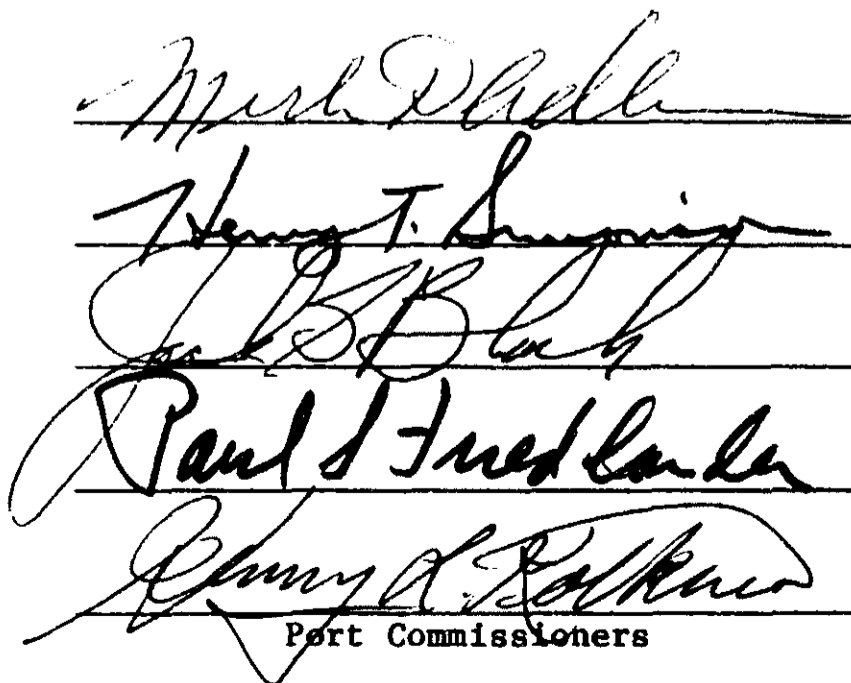 Merle D Adlum
Henry T. Simonson
Jack S Block
Paul S Friedlander
Henry L. Kotkins
Port Commissioners